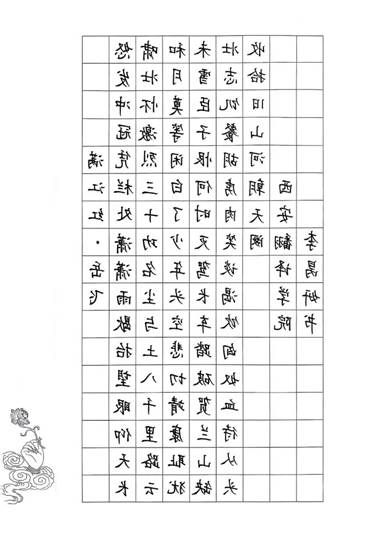 满江红·岳飞
怒发冲冠凭栏处潇潇雨歇抬望眼仰天长
啸壮怀激烈三十功名尘与土八千里路云
和月莫等闲白了少年头空悲切靖康耻犹
未雪臣子恨何时灭驾长车踏破贺兰山缺
壮志饥餐胡虏肉笑谈渴饮匈奴血待从头
收拾旧山河朝天阙
西安翻译学院
李妍书